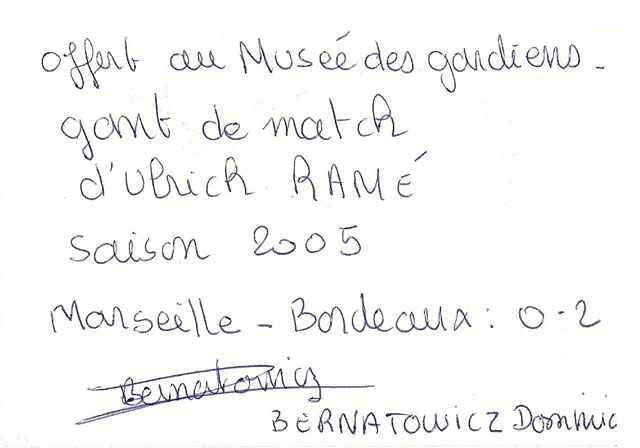 Offert au Museé des gardiens -
gant de match
d'Ulrich RAMÉ
saison 2005
Marseille - Bordeaux : 0-2
Bernatowicz
BERNATOWICZ Dominic